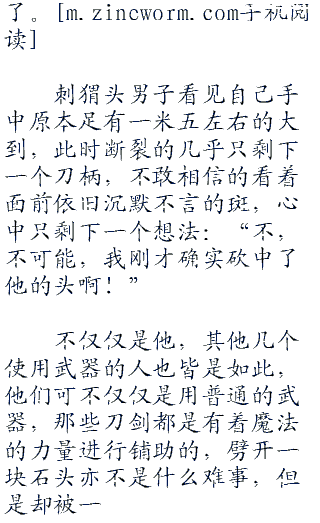 了。[m.zincworm.com手机阅
读]
刺猬头男子看见自己手
中原本足有一米五左右的大
到，此时断裂的几乎只剩下
一个刀柄，不敢相信的看着
面前依旧沉默不言的斑，心
中只剩下一个想法：“不，
不可能，我刚才确实砍中了
他的头啊！”
不仅仅是他，其他几个
使用武器的人也皆是如此，
他们可不仅仅是用普通的武
器，那些刀剑都是有着魔法
的力量进行铺助的，劈开一
块石头亦不是什么难事，但
是却被一